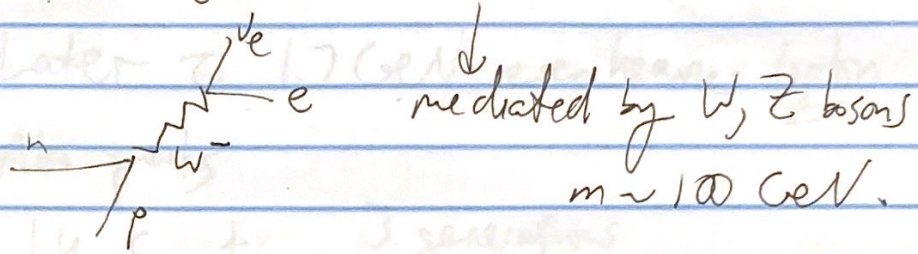 νe
e
mediated by W, Z bosons
n
W⁻
m ~ 100 GeV.
p